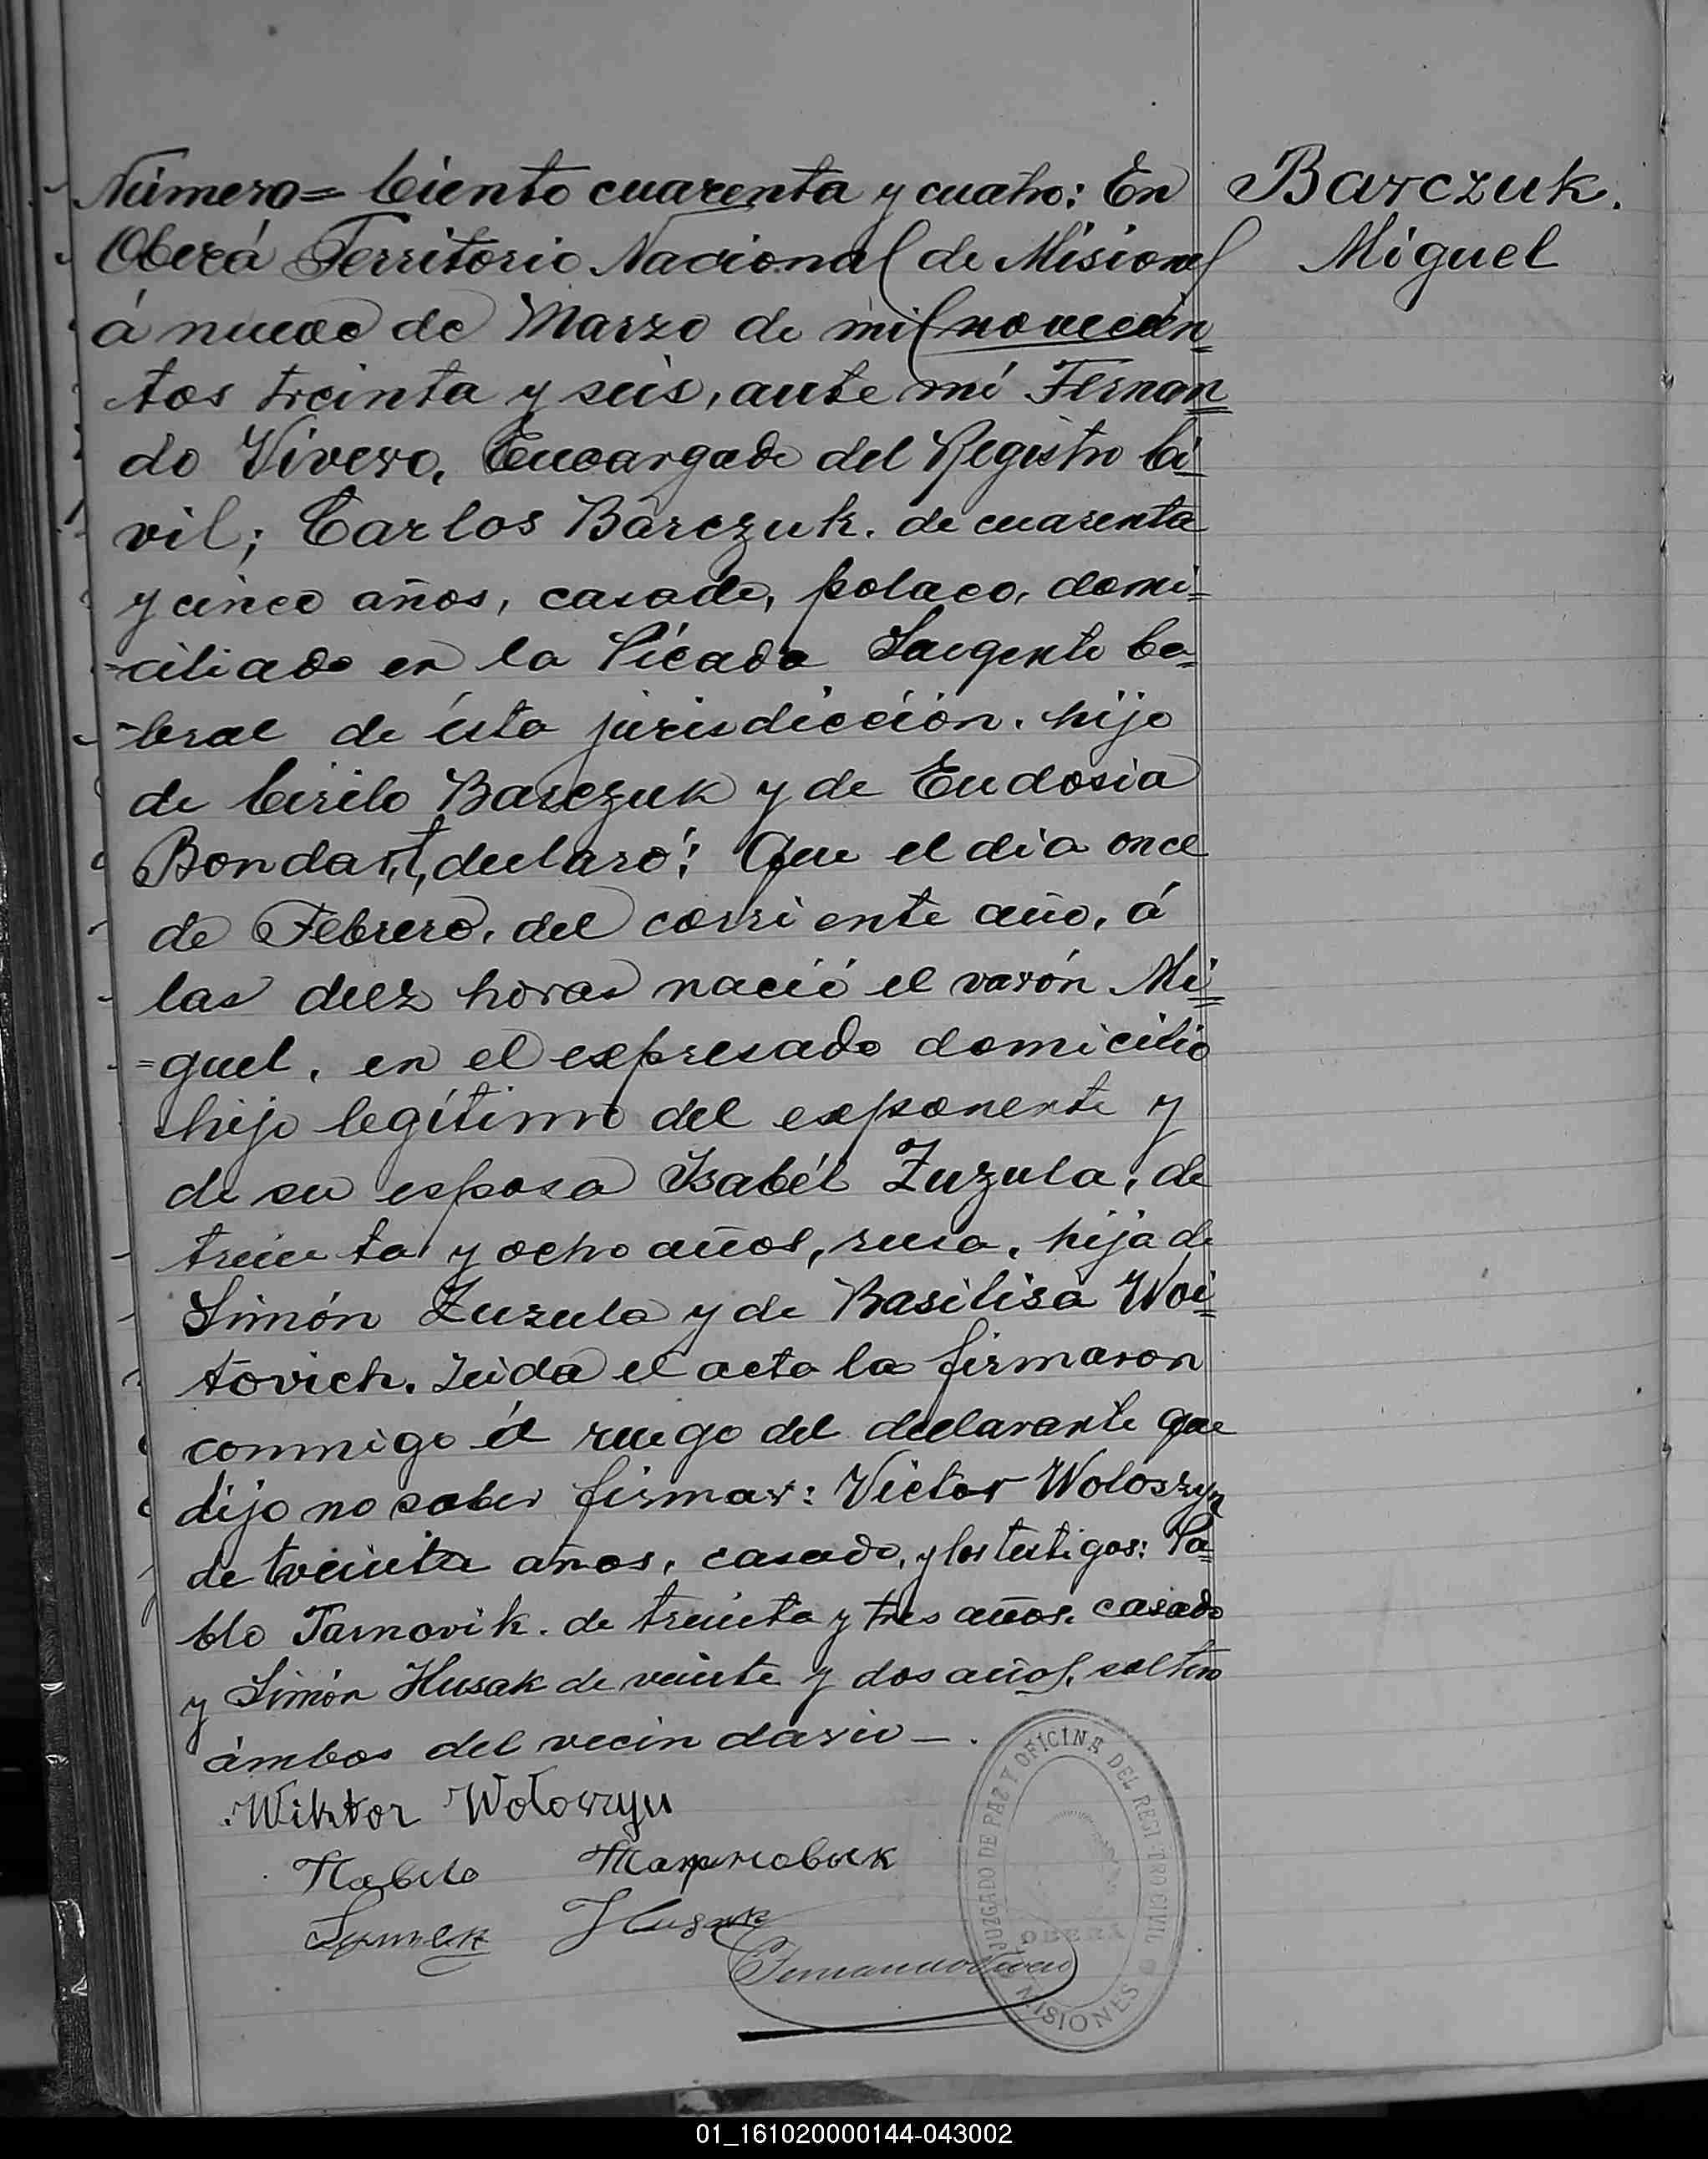 Número= Ciento cuarenta y cuatro: En
Oberá Territorio Nacional de Misiones
á nueve de Marzo de mil novecien
tos treinta y seis, ante mí Fernan
do Vivero, Encargado del Registro Ci
vil; Carlos Barczuk. de cuarenta
y cinco años, casado, polaco, domi=
=ciliado en la Picada Sargento Ca=
=bral de ésta jurisdicción. hijo
de Cirilo Barczuk y de Eudosia
Bondart, declaró: Que el día once
de Febrero, del corriente año, á
las diez horas nació el varón Mi=
=guel, en el expresado domicilio
hijo legítimo del exponente y
de su esposa Isabél Zuzula, de
treinta y ocho años, rusa, hija de
Simón Zuzula y de Basilisa Woi=
tovich. Leida el acta la firmaron
conmigo á ruego del declarante que
dijo no saber firmar: Victor Woloszyn
de treinta años, casado, y los testigos: Pa=
blo Tarnovik. de treinta y tres años. casado
y Simón Husak de veinte y dos años, soltero
ámbos del vecindario —.
Wiktor Wołoszyn
Павло Тарновик
Husak
Fernando Vivero
Barczuk.
Miguel
JUZGADO DE PAZ Y OFICINA DEL REGISTRO CIVIL
OBERÁ
MISIONES
01_161020000144-043002